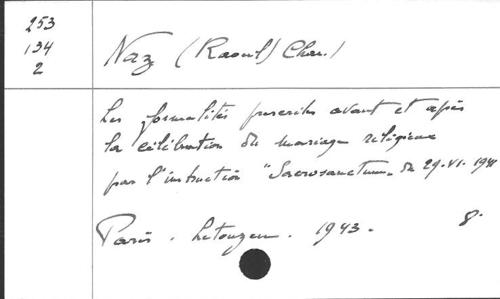 253
134
2
Naz (Raoul) Chan.)
Les formalités prescrites avant et après
la célébration du mariage religieux
par l'instruction "Sacrosanctum" du 29.VI.1941
Paris. Letouzey. 1943. 8°